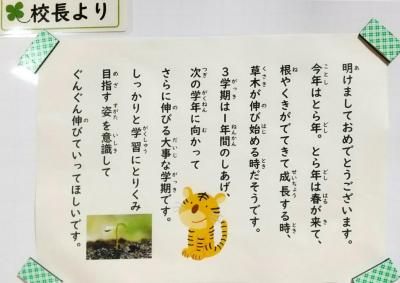 校長より
明けましておめでとうございます。
今年はとら年。とら年は春が来て、
根やくきがでてきて成長する時、
草木が伸び始める時だそうです。
3学期は1年間のしあげ、
次の学年に向かって
さらに伸びる大事な学期です。
しっかりと学習にとりくみ
目指す姿を意識して
ぐんぐん伸びていってほしいです。